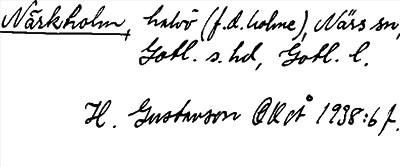 Närkholm, halvö (f.d. holme), Närs sn,
Gotl. s. hd, Gotl. l.
H. Gustavson 1938:6 f.